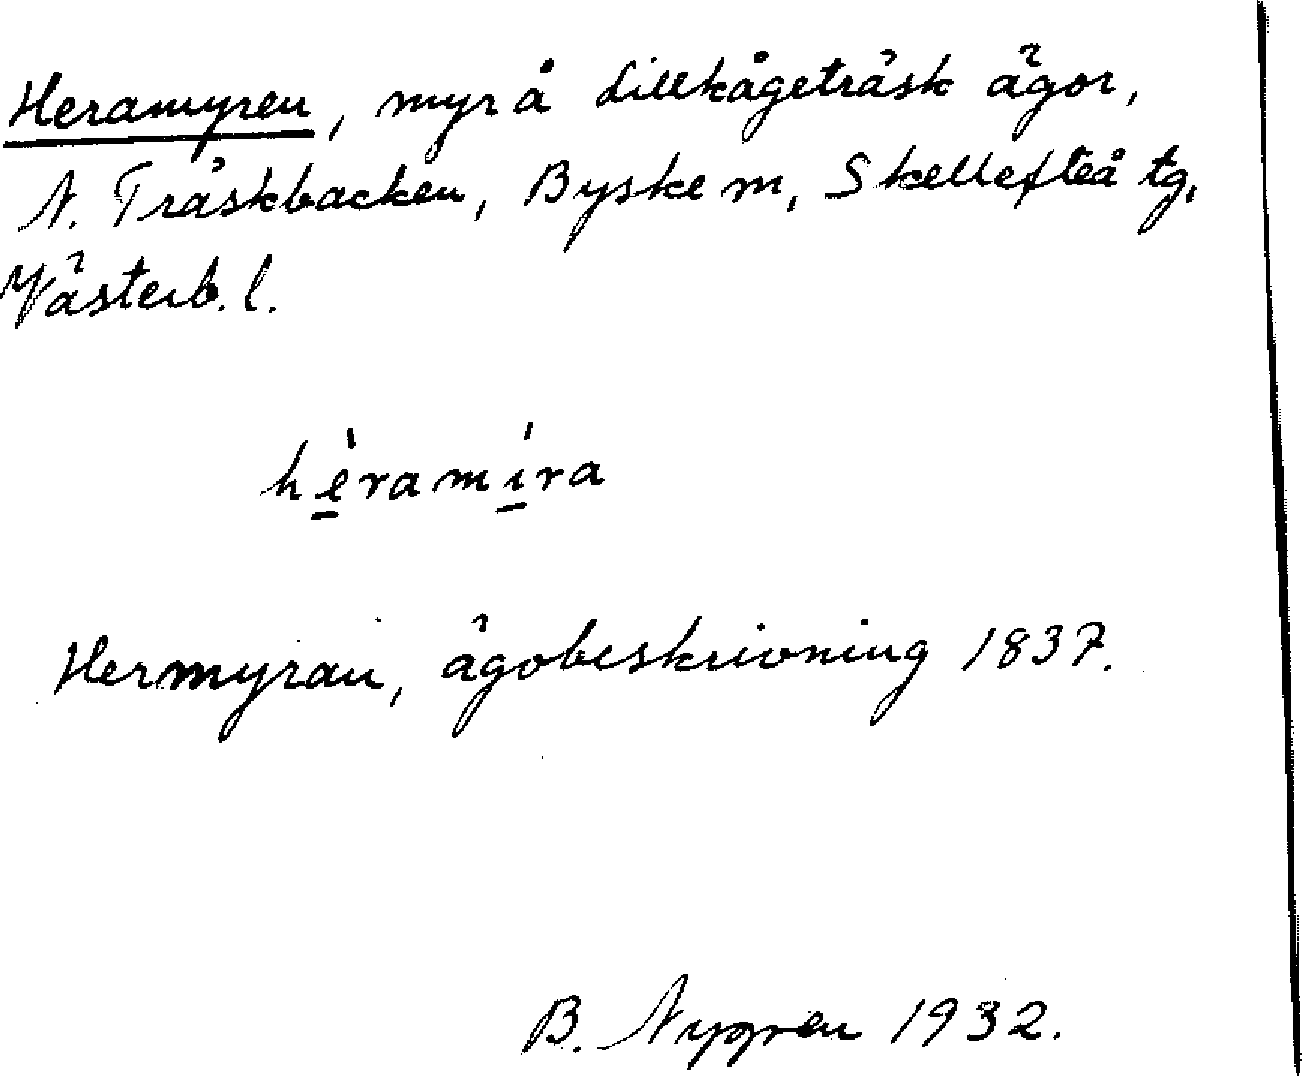 Heramyren, myr å Lillkågeträsk ägor,
N. Träskbacken, Byske m, Skellefteå tg,
Västerb. l.
hèramíra
Hermyran, ägobeskrivning 1837.
B. Nygren 1932.